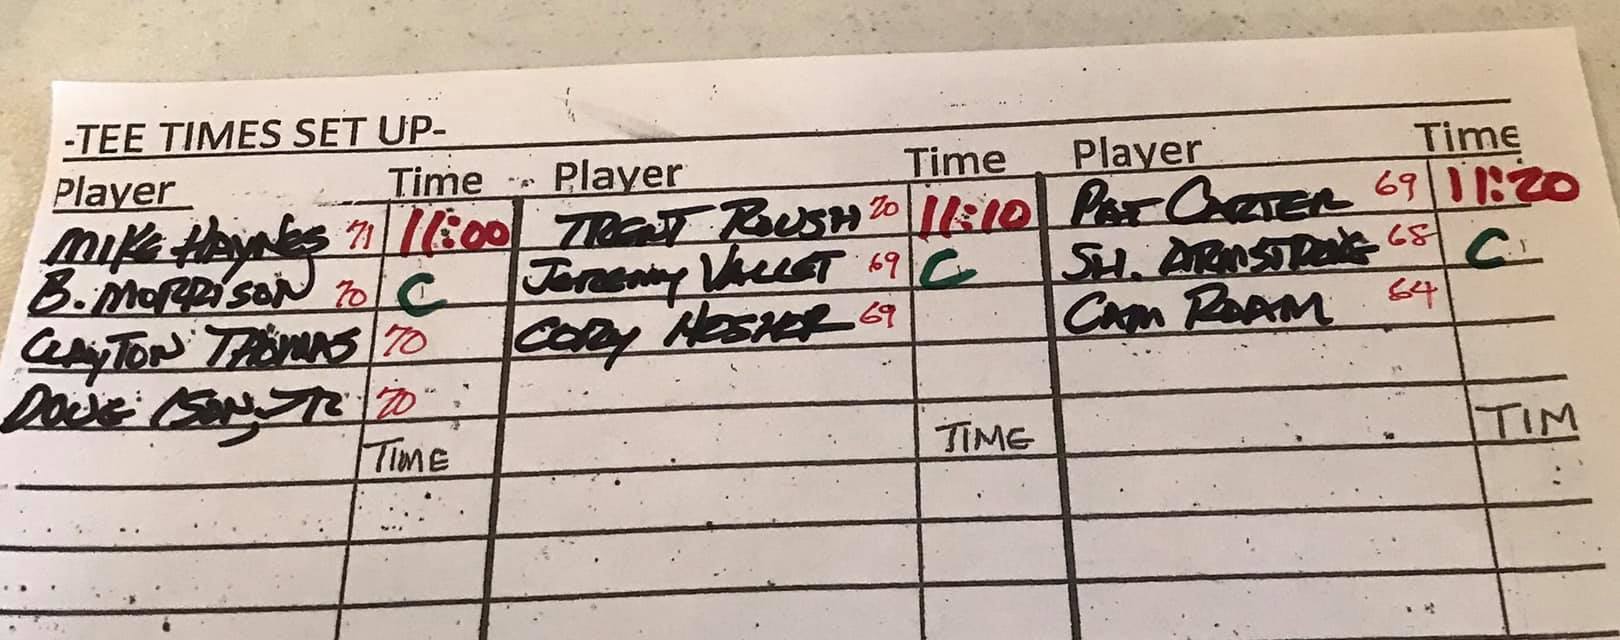 -TEE TIMES SET UP-
Player Time Player Time Player Time
MIKE HAYNES 71 11:00 TRENT ROUSH 70 11:10 PAT CARTER 69 11:20
B. MORRISON 70 C Jeremy VALLET 69 C SH. ARMSTRONG 68 C
CLAYTON THOMAS 70 CORY HOSHER 69 CAM ROAM 64
DOUG ISON, JR 70
TIME TIME TIM